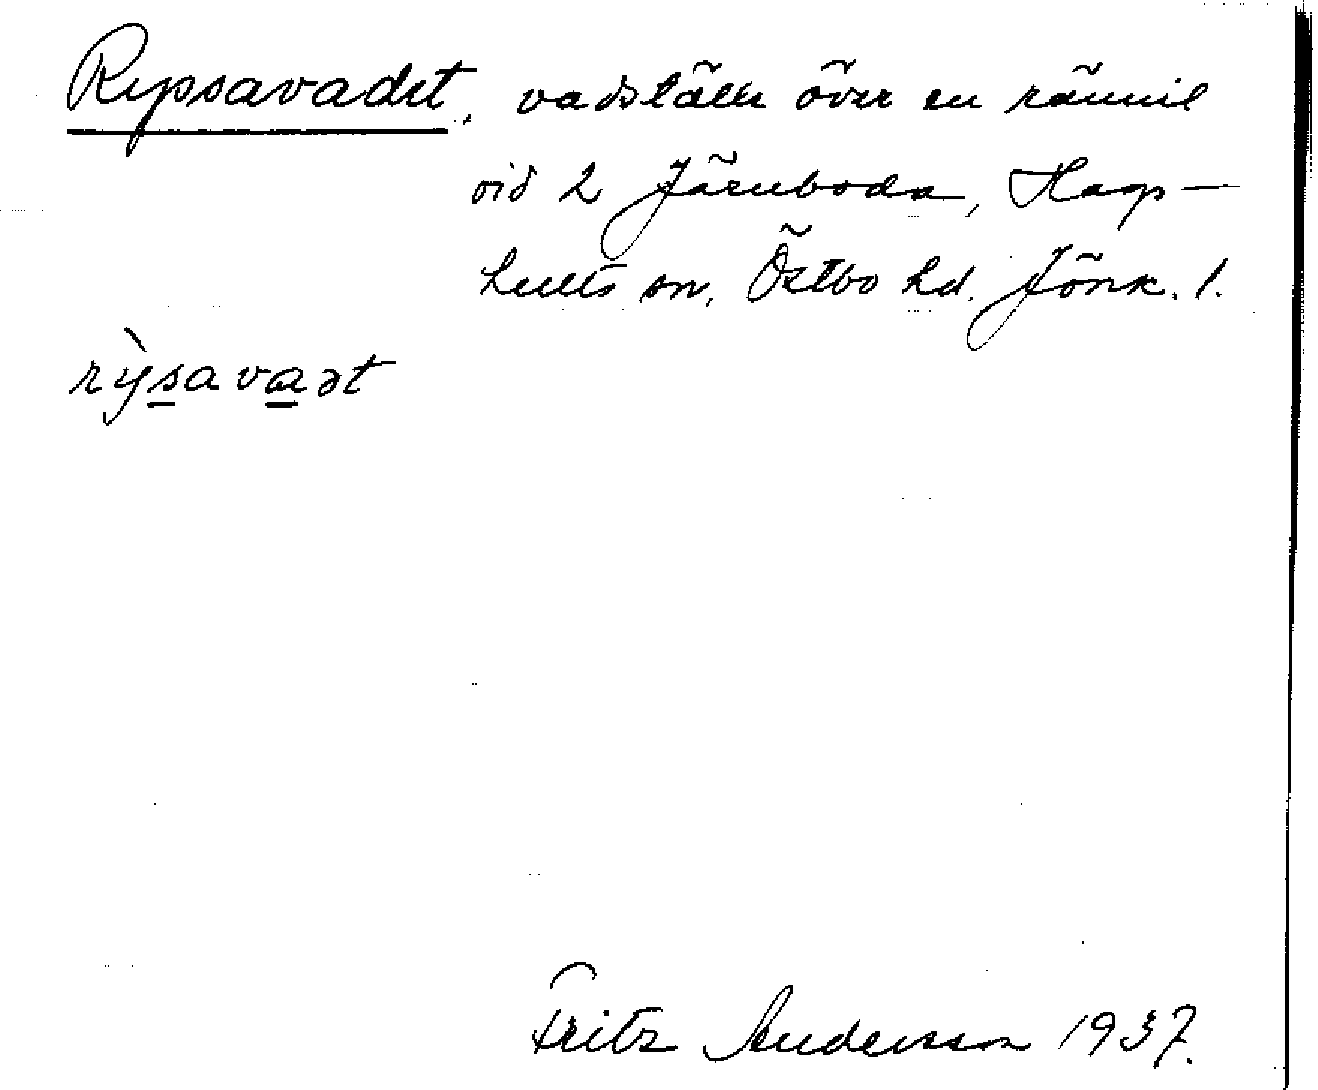 Rypsavadet, vadställe över en rännil
vid 2 Järnboda, Hags-
hults sn, Östbo hd. Jönk. l.
rỳsavaət
Fritz Andersson 1937.